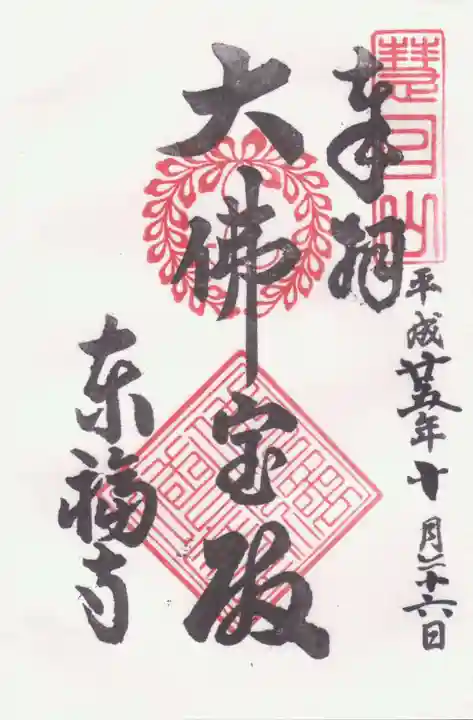 慧日山
奉拝
平成廿五年十月二十六日
大佛宝殿
东福寺